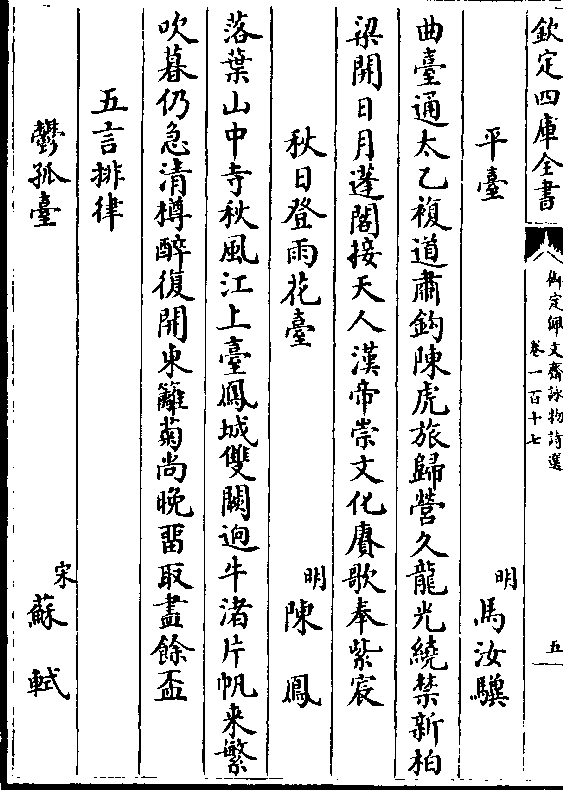 欽定四庫全書
御定佩文齋詠物詩選
卷一百十七
五
平臺
明
馬汝驥
曲臺通太乙複道肅鈎陳虎旅歸營久龍光繞禁新柏
梁開日月蓬閣接天人漢帝崇文化賡歌奉紫宸
秋日登雨花臺
明
陳鳳
落葉山中寺秋風江上臺鳳城雙闕逈牛渚片帆来繁
吹暮仍急清樽醉復開東籬菊尚晚畱取盡餘盃
五言排律
鬱孤臺
宋
蘇軾